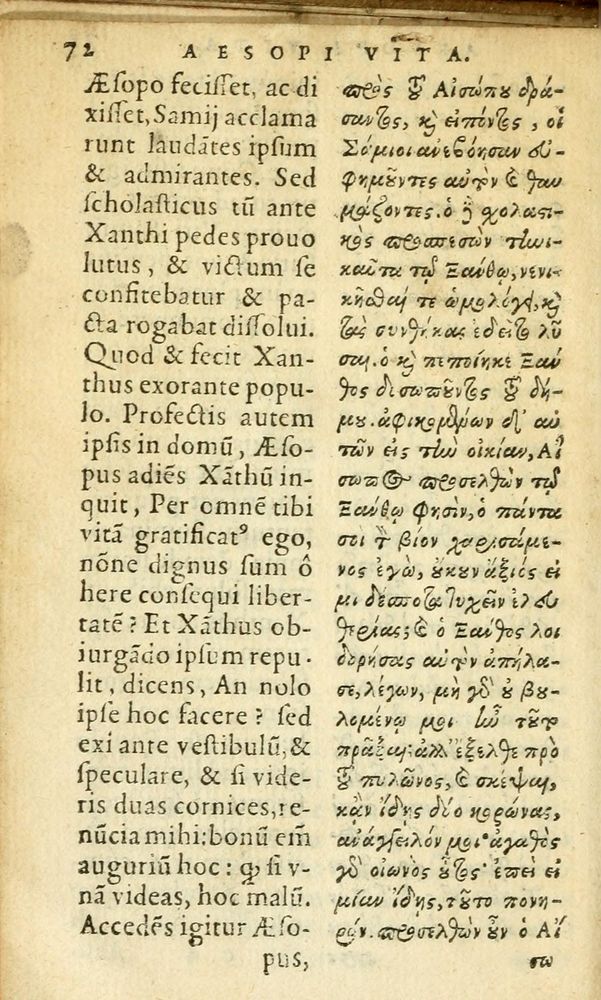 72 AESOPI VITA.
Æsopo fecisset, ac di
xisset, Samij acclama
runt laudātes ipsum
& admirantes. Sed
scholasticus tū ante
Xanthi pedes prouo
lutus, & victum se
confitebatur & pa-
cta rogabat dissolui.
Quod & fecit Xan-
thus exorante popu-
lo. Profectis autem
ipsis in domū, Æso-
pus adiēs Xāthū in-
quit, Per omnē tibi
vitā gratificatꝰ ego,
nōne dignus sum ô
here consequi liber-
tatē? Et Xāthus ob-
iurgādo ipsum repu-
lit, dicens, An nolo
ipse hoc facere? sed
exi ante vestibulū, &
speculare, & si vide-
ris duas cornices, re-
nūcia mihi: bonū em̄
auguriū hoc: ꝙ si v-
nā videas, hoc malū.
Accedēs igitur Æso-
pus,
πρὸς τοῦ Αἰσώπου δρά-
σαντος, καὶ εἰπόντος, οἱ
Σάμιοι ανεβόησαν ευ-
φημοῦντες αὐτὸν καὶ θαυ
μάζοντες. ὁ δὲ σχολαστι-
κὸς προσπεσὼν τηνι-
καῦτα τῷ Ξάνθῳ, νενι-
κῆσθαί τε ὡμολόγει, καὶ
τὰς συνθήκας ἐδεῖτο λῦ
σαι. ὁ καὶ πεποίηκε Ξάν
θος δισωποῦντος τοῦ δή-
μου. ἀφικομένων δ' αὐ
τῶν εἰς τὴν οἰκίαν, Αἴ
σωπος προσελθὼν τῷ
Ξάνθῳ φησὶν, ὁ πάντα
σοι τὸν βίον χαρισάμε-
νος ἐγὼ, οὐκοῦν ἄξιός εἰ
μι δέσποτα τυχεῖν ἐλευ
θερίας; καὶ ὁ Ξάνθος λοι
δορήσας αὐτὸν ἀπήλα-
σε, λέγων, μὴ γὰρ οὐ βου-
λομένῳ μοι ἦν τοῦτο
πρᾶξαι; ἀλλ' ἔξελθε πρὸ
τοῦ πυλῶνος, καὶ σκέψαι,
κἂν ἴδῃς δύο κορώνας,
ἀνάγγειλόν μοι· ἀγαθὸς
γὰρ οἰωνὸς οὗτος· ἐπεὶ εἰ
μίαν ἴδῃς, τοῦτο πονη-
ρόν. προσελθὼν οὖν ὁ Αἴ
σω